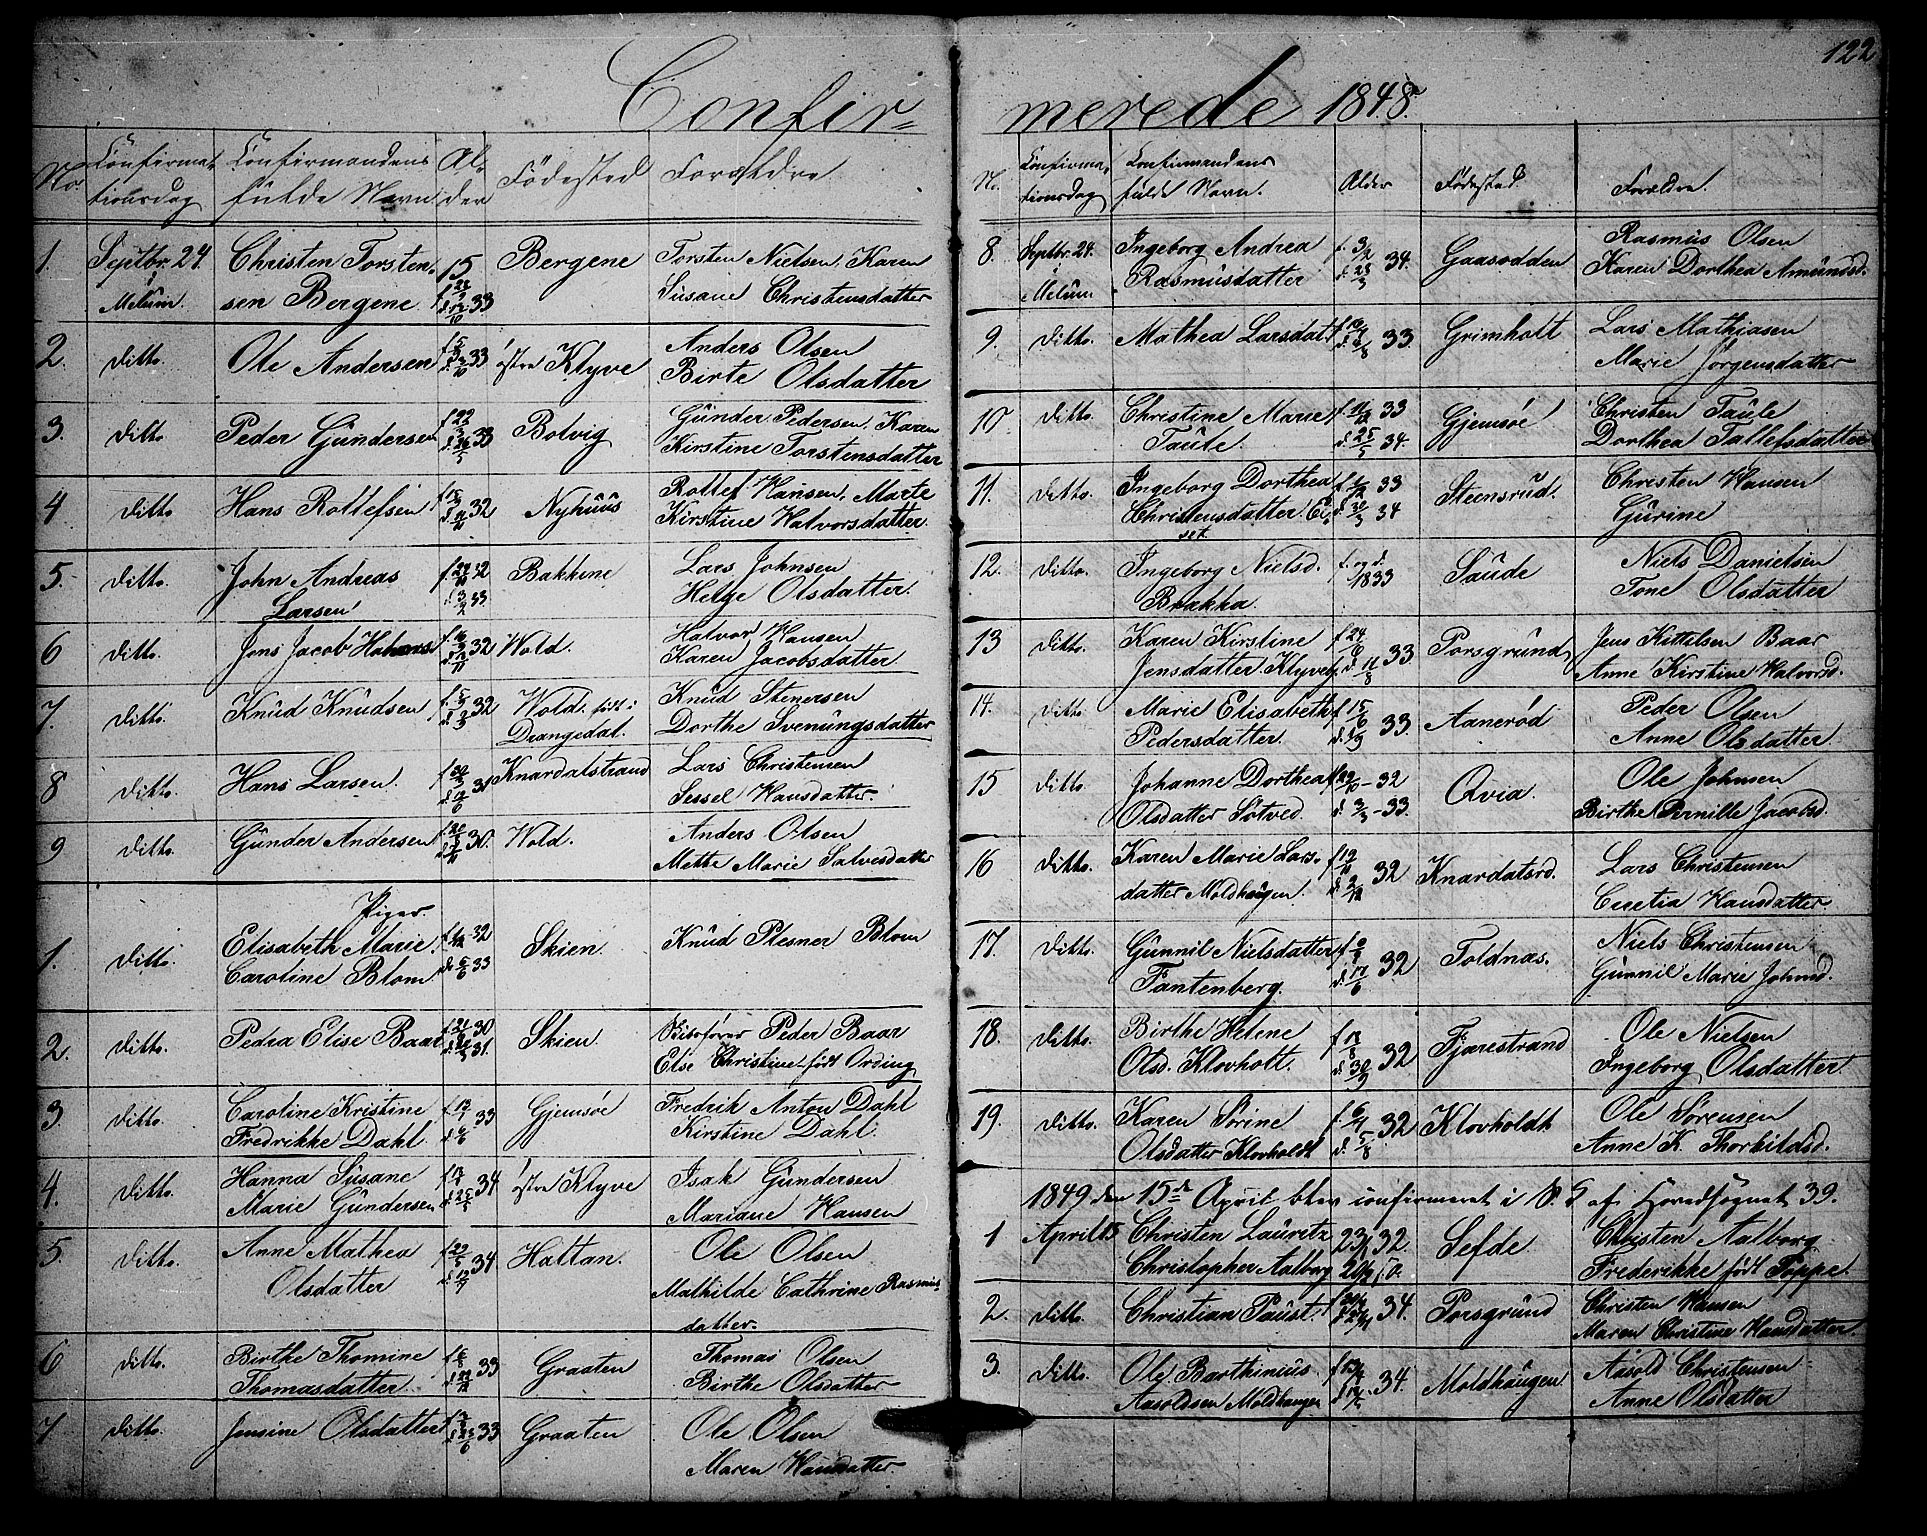 122
Confir=
merede 1848.
No
Confirmat-
tionsdag
Confirmandens
fulde Navn
Al-
der
Födested
Forældre
1.
Septbr. 24.
i
Melum.
Christen Torsten-
sen Bergene
15
33
Bergene
Torsten Nielsen, Karen
Susane Christensdatter
2.
ditto.
Ole Andersen
33
östre Klyve
Anders Olsen
Birte Olsdatter
3.
ditto
Peder Gundersen
33
Bolvig
Gunder Pedersen, Karen
Kirstine Torstensdatter
4
ditto
Hans Rollefsen
32
Nyhuus
Rollef Hansen, Marte
Kirstine Halvorsdatter
5.
ditto.
John Andreas
Larsen
32
33
Bakkene
Lars Johnsen
Helge Olsdatter.
6
ditto.
Jens Jacob
32
Wold.
Halvor Hansen
Karen Jacobsdatter
7.
ditto.
Knud Knudsen
32
Wold. født i
Drangedal.
Knud Stenersen
Dorthe Svenungsdatter
8
ditto.
Hans Larsen.
31
Knardalstrand
Lars Christensen
Sessel Hansdatter.
9
ditto.
Gunder Andersen
30.
Wold.
Anders Olsen
Mette Marie Salvesdatter
Piger.
1.
ditto.
Elisabeth Marie
Caroline Blom
32
33
Skien.
Knud Plesner Blom
2.
ditto.
Pedra Elise Baar
30
31.
Skien.
Peder Baar
Else Christine født Ording
3.
ditto.
Caroline Kristine
Fredrikke Dahl
33
Gjemsøe
Fredrik Anton Dahl
Kirstine Dahl.
4.
ditto.
Hanna Susane
Marie Gundersen
34
östre Klyve
Isak Gundersen
Mariane Hansen
5.
ditto.
Anne Mathea
Olsdatter
34
Hattan.
Ole Olsen
Mathilde Cathrine Rasmus-
datter.
6
ditto.
Birthe Thomine
Thomasdatter
33
Graaten
Thomas Olsen
Birthe Olsdatter
7
ditto.
Jensine Olsdatter
33
Graaten
Ole Olsen
Maren Hansdatter
N.
Confirma-
tionsdag
Confirmandens
fulde Navn.
Alder
Födested.
Forældre.
8.
Septbr. 24.
i
Melum
Ingeborg Andrea
Rasmusdatter
f. 3/2
34.
Gaasodden
Rasmus Olsen
Karen Dorthea Amundsd.
9.
ditto.
Mathea Larsdatt
33.
Grimholt
Lars Mathiasen
Marie Jørgensdatter
10
ditto.
Christine Marie
Taule.
33
d. 25/5 34.
Gjemsøe
Christen Taule
Dorthea Tallefsdatter
11.
ditto.
Ingeborg Dorthea
Christensdatter
33
34
Steensrud.
Christen Hansen
Gurine
12.
ditto.
Ingeborg Nielsd.
Brakka.
f. og d.
1833
Saude
Niels Danielsen
Tone Olsdatter
13
ditto.
Karen Kirstine
Jensdatter Klyve
f 24/6
d. 11/8 33.
Porsgrund
Jens Kittelsen Baar
Anne Kirstine Halvorsd.
14.
ditto.
Marie Elisabeth
Pedersdatter.
f 15/6
33.
Aanerød
Peder Olsen
Anne Olsdatter.
15
ditto.
Johanne Dorthea
Olsdatter Solved.
32
d. 3/3 - 33.
Qvia.
Ole Johnsen
Birthe Pernille Jacobsd.
16
ditto.
Karen Marie Lars-
datter Moldhaugen.
32
Knardalsrd.
Lars Christensen
Cecelia Hansdatter.
17.
ditto.
Gunnil Nielsdatter
Fantenberg.
d. 17/6 32
Toldnæs.
Niels Christensen
Gunnil Marie Johnsd.
18.
ditto.
Birthe Helene
Olsd. Klovholt.
d. 30/9 32
Fjærestrand
Ole Nielsen
Ingeborg Olsdatter
19.
ditto.
Karen Sørine
Olsdatter Klovholdt
d. 5/8 32
Klovholdt
Ole Sørensen
Anne K. Thorkildsd.
1849 den 15de April blev confirmeret i af Hovedsognet 39.
1
April 15
Christen Lauritz
Christopher Aalborg
32.
Sefde.
Christen Aalborg
Frederikke født Poppe.
2.
ditto.
Christian Paust.
34.
Porsgrund
Christen Hansen
Maren Christine Hansdatter.
3.
ditto.
Ole Barthinius
Aasoldsen Moldhaugen
34.
Moldhaugen
Aasold Christensen
Anne Olsdatter